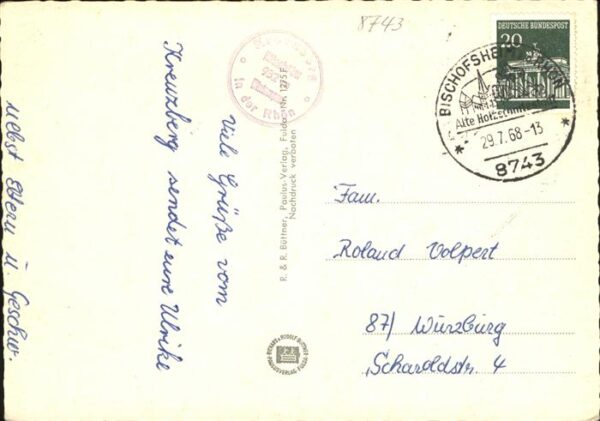 8743
DEUTSCHE BUNDESPOST
20
BISCHOFSHEIM
RHÖN
Alte Holzschnitz
29.7.68-13
8743
in der Rhön
Viele Grüße vom
Kreuzberg sendet eure Ulrike
nebst Eltern u. Geschw.
R. & R. Büttner, Paulus-Verlag, Fulda Nr. 1275 F
Nachdruck verboten
Fam.
Roland Volpert
87/ Würzburg
Scharoldstr. 4